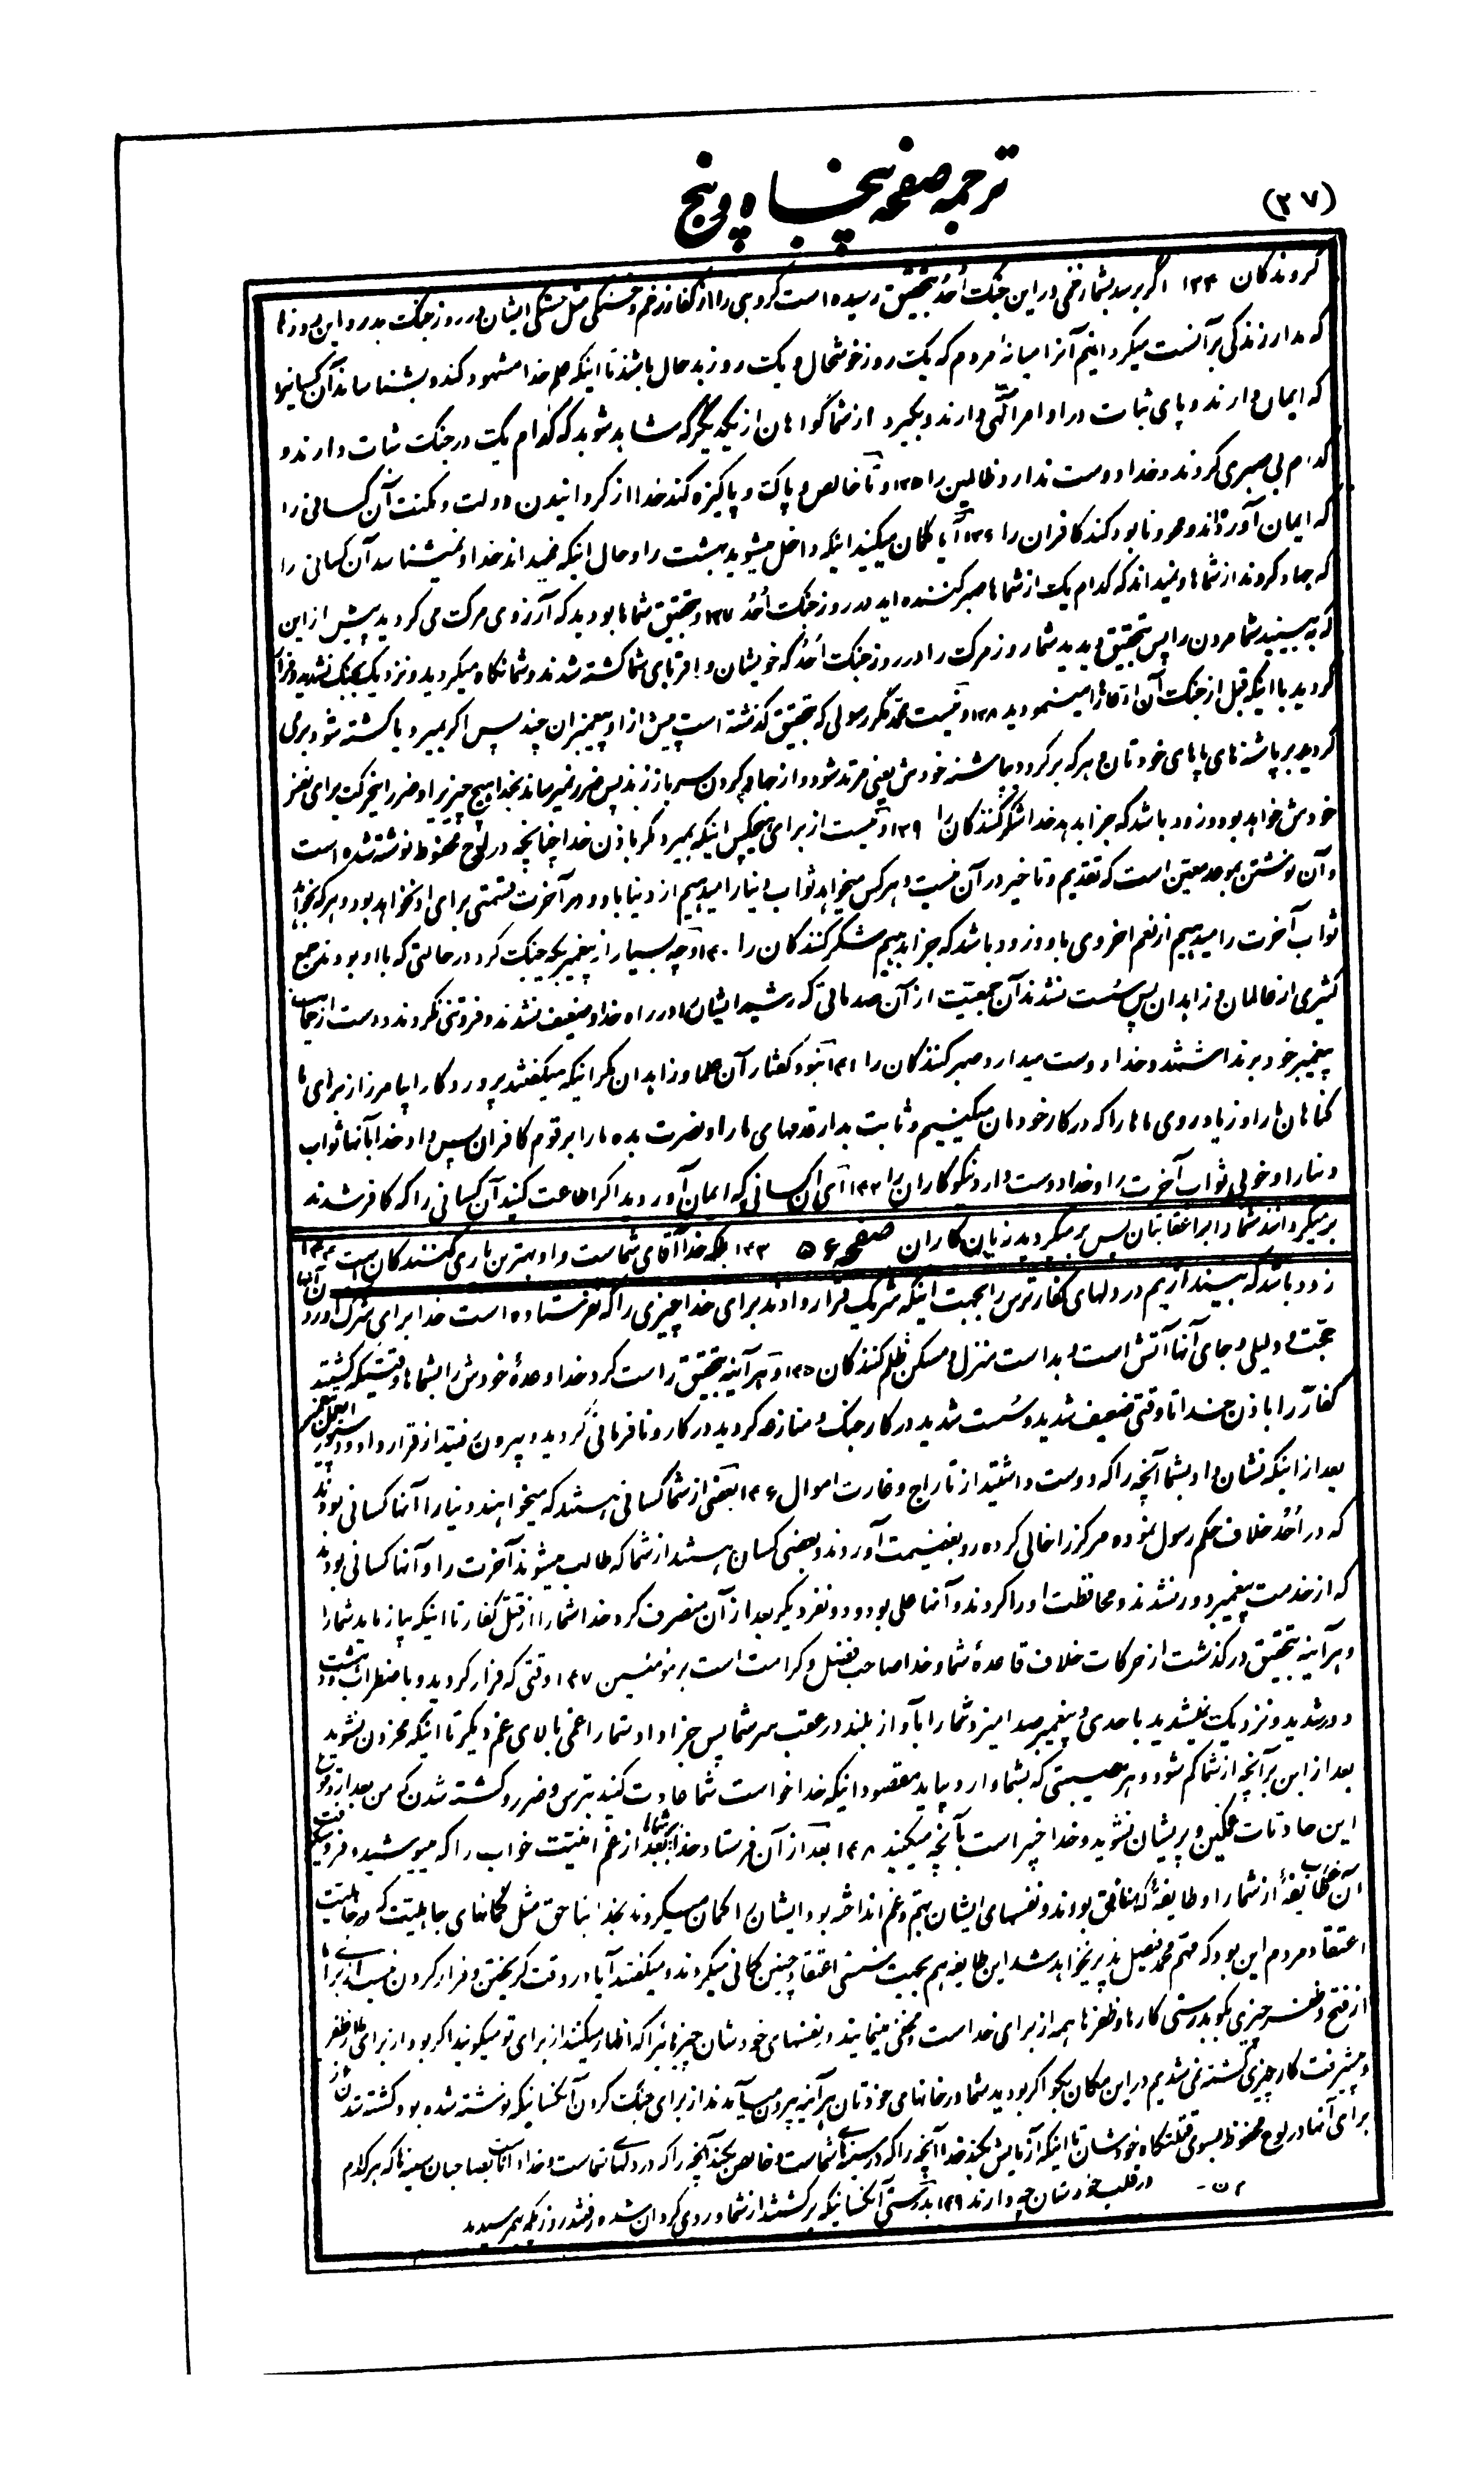 (۳۷)
ترجمه صفحه پنجاه و پنج
گروندگان ۱۳۴ اگر برسد بشما زخمی در این جنگ اُحُد بتحقیق رسیده است گروهی را از کفار زخم و خستگی مثل خستگی ایشان در روز جنگ بدر و این روزها
که مدار زندگی بر آنست میگردانیم آنرا میانهٔ مردم که یکروز خوشحال و یک روز بدحال باشند تا اینکه علم خدا مشهود کند و بشناساند آن کسانیرا
که ایمان دارند و پای ثبات در اوامر الٓهی دارند و بگیرد از شما گواهان از یکدیگر که شاهد شوید که کدام یک در جنگ ثبات دارند و
کدام بی صبری کردند و خدا دوست ندارد ظالمین را ۱۳۵ و تا خالص و پاک و پاکیزه کند خدا از گردانیدن دولت و مکنت آن کسانی را
که ایمان آورده‌اند و محو و نابود کند کافران را ۱۳۶ آیا گمان میکنید اینکه داخل میشوید بهشت را و حال اینکه نمیداند خدا و نمیشناسد آن کسانی را
که جهاد کردند از شماها و نمیداند که کدام یک از شماها صبر کننده‌اید در روز جنگ اُحُد ۱۳۷ و بتحقیق شماها بودید که آرزوی مرگ می کردید پیش از این
که به بینید شما مردن را پس بتحقیق دیدید شما روز مرگ را در روز جنگ اُحُد که خویشان و اقربای شما کشته شدند و شما نگاه میکردید و نزدیک بجنگ نشدید و فرار
کردید با اینکه قبل از جنگ آن ادعاها را مینمودید ۱۳۸ و نیست محمد مگر رسولی که بتحقیق گذشته است پیش از او پیغمبران چند پس اگر بمیرد یا کشته شود برمی
گردید بر پاشنه‌های پاهای خودتان و هرکه برگردد بپاشنه خودش یعنی مرتد شود و از جهاد کردن سر باز زند پس ضرر نمیرساند بخدا هیچ چیز را و ضرر این حرکت برای نفس
خودش خواهد بود و زود باشد که جزا بدهد خدا شکر کنندگان را ۱۳۹ و نیست از برای هیچکس اینکه بمیرد مگر باذن خدا چنانچه در لوح محفوظ نوشته شده است
و آن نوشتن بموعد معیّن است که تقدیم و تاخیر در آن نیست و هر کس میخواهد ثواب دنیا را میدهیم از دنیا باو و در آخرت قسمتی برای او نخواهد بود و هرکه بخواهد
ثواب آخرت را میدهیم از نعم اخروی باو و زود باشد که جزا بدهیم شکر کنندگان را ۱۴۰ و چه بسیار از پیغمبریکه جنگ کرد در حالتی که با او بودند جمع
کثیری از عالمان و زاهدان پس سُست نشدند آن جمعیّت از آن صدماتی که رسید ایشان را در راه خدا و ضعیف نشدند و فروتنی نکردند و دست از حمایت
پیغمبر خود برنداشتند و خدا دوست میدارد صبر کنندگان را ۱۴۱ و نبود گفتار آن علما و زاهدان مگر اینکه میگفتند پروردگارا بیامرز از برای ما
گناهان ما را و زیاد روی ماها را که در کار خودمان میکنیم و ثابت بدار قدمهای ما را و نصرت بده ما را بر قوم کافران پس داد خدا بآنها ثواب
دنیا را و خوبی ثواب آخرت را و خدا دوست دارد نیکوکاران را ۱۴۲ ای آن کسانی که ایمان آوردید اگر اطاعت کنید آن کسانی را که کافر شدند
بر میگردانند شما را بر اعقابتان پس بر میگردید زیان کاران صفحه ۵۶ ۱۴۳ بلکه خدا آقای شما است و او بهترین یاری کنندگان است ۱۴۴
زود باشد که بیندازیم در دلهای کفار ترس را بجهت اینکه شریک قرار دادند برای خدا چیزی را که نفرستاده است خدا برای شرک آوردن آنها
حجت و دلیلی و جای آنها آتش است و بد است منزل و مسکن ظلم کنندگان ۱۴۵ و هر آینه بتحقیق راست کرد خدا وعدهٔ خودش را بشماها وقتیکه کشتید
کفار را باذن خدا تا وقتی ضعیف شدید و سُست شدید در کار جنگ و منازعه کردید در کار و نافرمانی کردید و بیرون رفتید از قرارداد
بعد از اینکه نشان داد بشما آنچه را که دوست داشتید از تاراج و غارت اموال ۱۴۶ بعضی از شما کسانی هستند که میخواهند دنیا را آنها کسانی بودند
که در اُحُد خلاف حکم رسول نموده مرکز را خالی کرده رو بغنیمت آوردند و بعضی کسان هستند از شما که طالب میشوند آخرت را و آنها کسانی بودند
که از خدمت پیغمبر دور نشدند و محافظت او را کردند و آنها علی بود و دو نفر دیگر بعد از آن منصرف کرد خدا شما را از قتل کفار تا اینکه بیازماید شما را
و هر آینه بتحقیق درگذشت از حرکات خلاف قاعدهٔ شما و خدا صاحب فضل و کرامت است بر مؤمنین ۱۴۷ وقتی که فرار کردید و با اضطراب و وحشت
دور شدید و نزدیک نمیشدید باحدی و پیغمبر صدا میزد شما را بآواز بلند در عقب سر شما پس جزا داد شما را غمی بالای غم دیگر تا اینکه محزون نشوید
بعد از این بر آنچه از شما کم شود و هر مصیبتی که بشما وارد بیاید مقصود اینکه خدا خواست شما عادت کنید بترس و ضرر و کشته شدن که من بعد از وقوع
این حادثات غمگین و پریشان نشوید و خدا خبیر است بآنچه میکنید ۱۴۸ بعد از آن فرستاد خدا بر شماها بعد از غم امنیّت خواب را که میپوشید و فرو میگرفت
آن خواب طایفهٔ از شما را و طایفهٔ که منافق بودند و نفسهای ایشان بهمّ و غم انداخته بود ایشان را گمان میکردند بخدا بناحق مثل گمانهای جاهلیت که در جاهلیت
اعتقاد مردم این بود که مهمّ محمد فیصل پذیر نخواهد شد این طایفه هم بجهت سستی اعتقاد چنین گمانی میکردند و میگفتند آیا در وقت گریختن و فرار کردن نیست از برای ما
از فتح و ظفر چیزی بگو بدرستی کارها و ظفرها همه از برای خداست و مخفی مینمایند در نفسهای خودشان چیزهائیرا که اظهار نمیکنند از برای تو میگویند اگر بود از برای ما ظفر
و پیشرفت کار چیزی کشته نمی شدیم در این مکان بگو اگر بودید شما در خانهای خودتان هر آینه بیرون میآمدند از برای جنگ کردن آنکسانیکه نوشته شده بود کشته شدنشان
برای آنها در لوح محفوظ بسوی قتلگاه خودشان تا اینکه آزمایش بکند خدا آنچه را که در سینه‌های شماست و خالص بکند آنچه را که در دلهای شماست و خدا داناست بصاحبان سینه‌ها که هرکدام
در قلب خودشان چه دارند ۱۴۹ بدرستی آنکسانیکه برگشتند از شما و روی گردان شده رفتند روزیکه بهم رسیدند